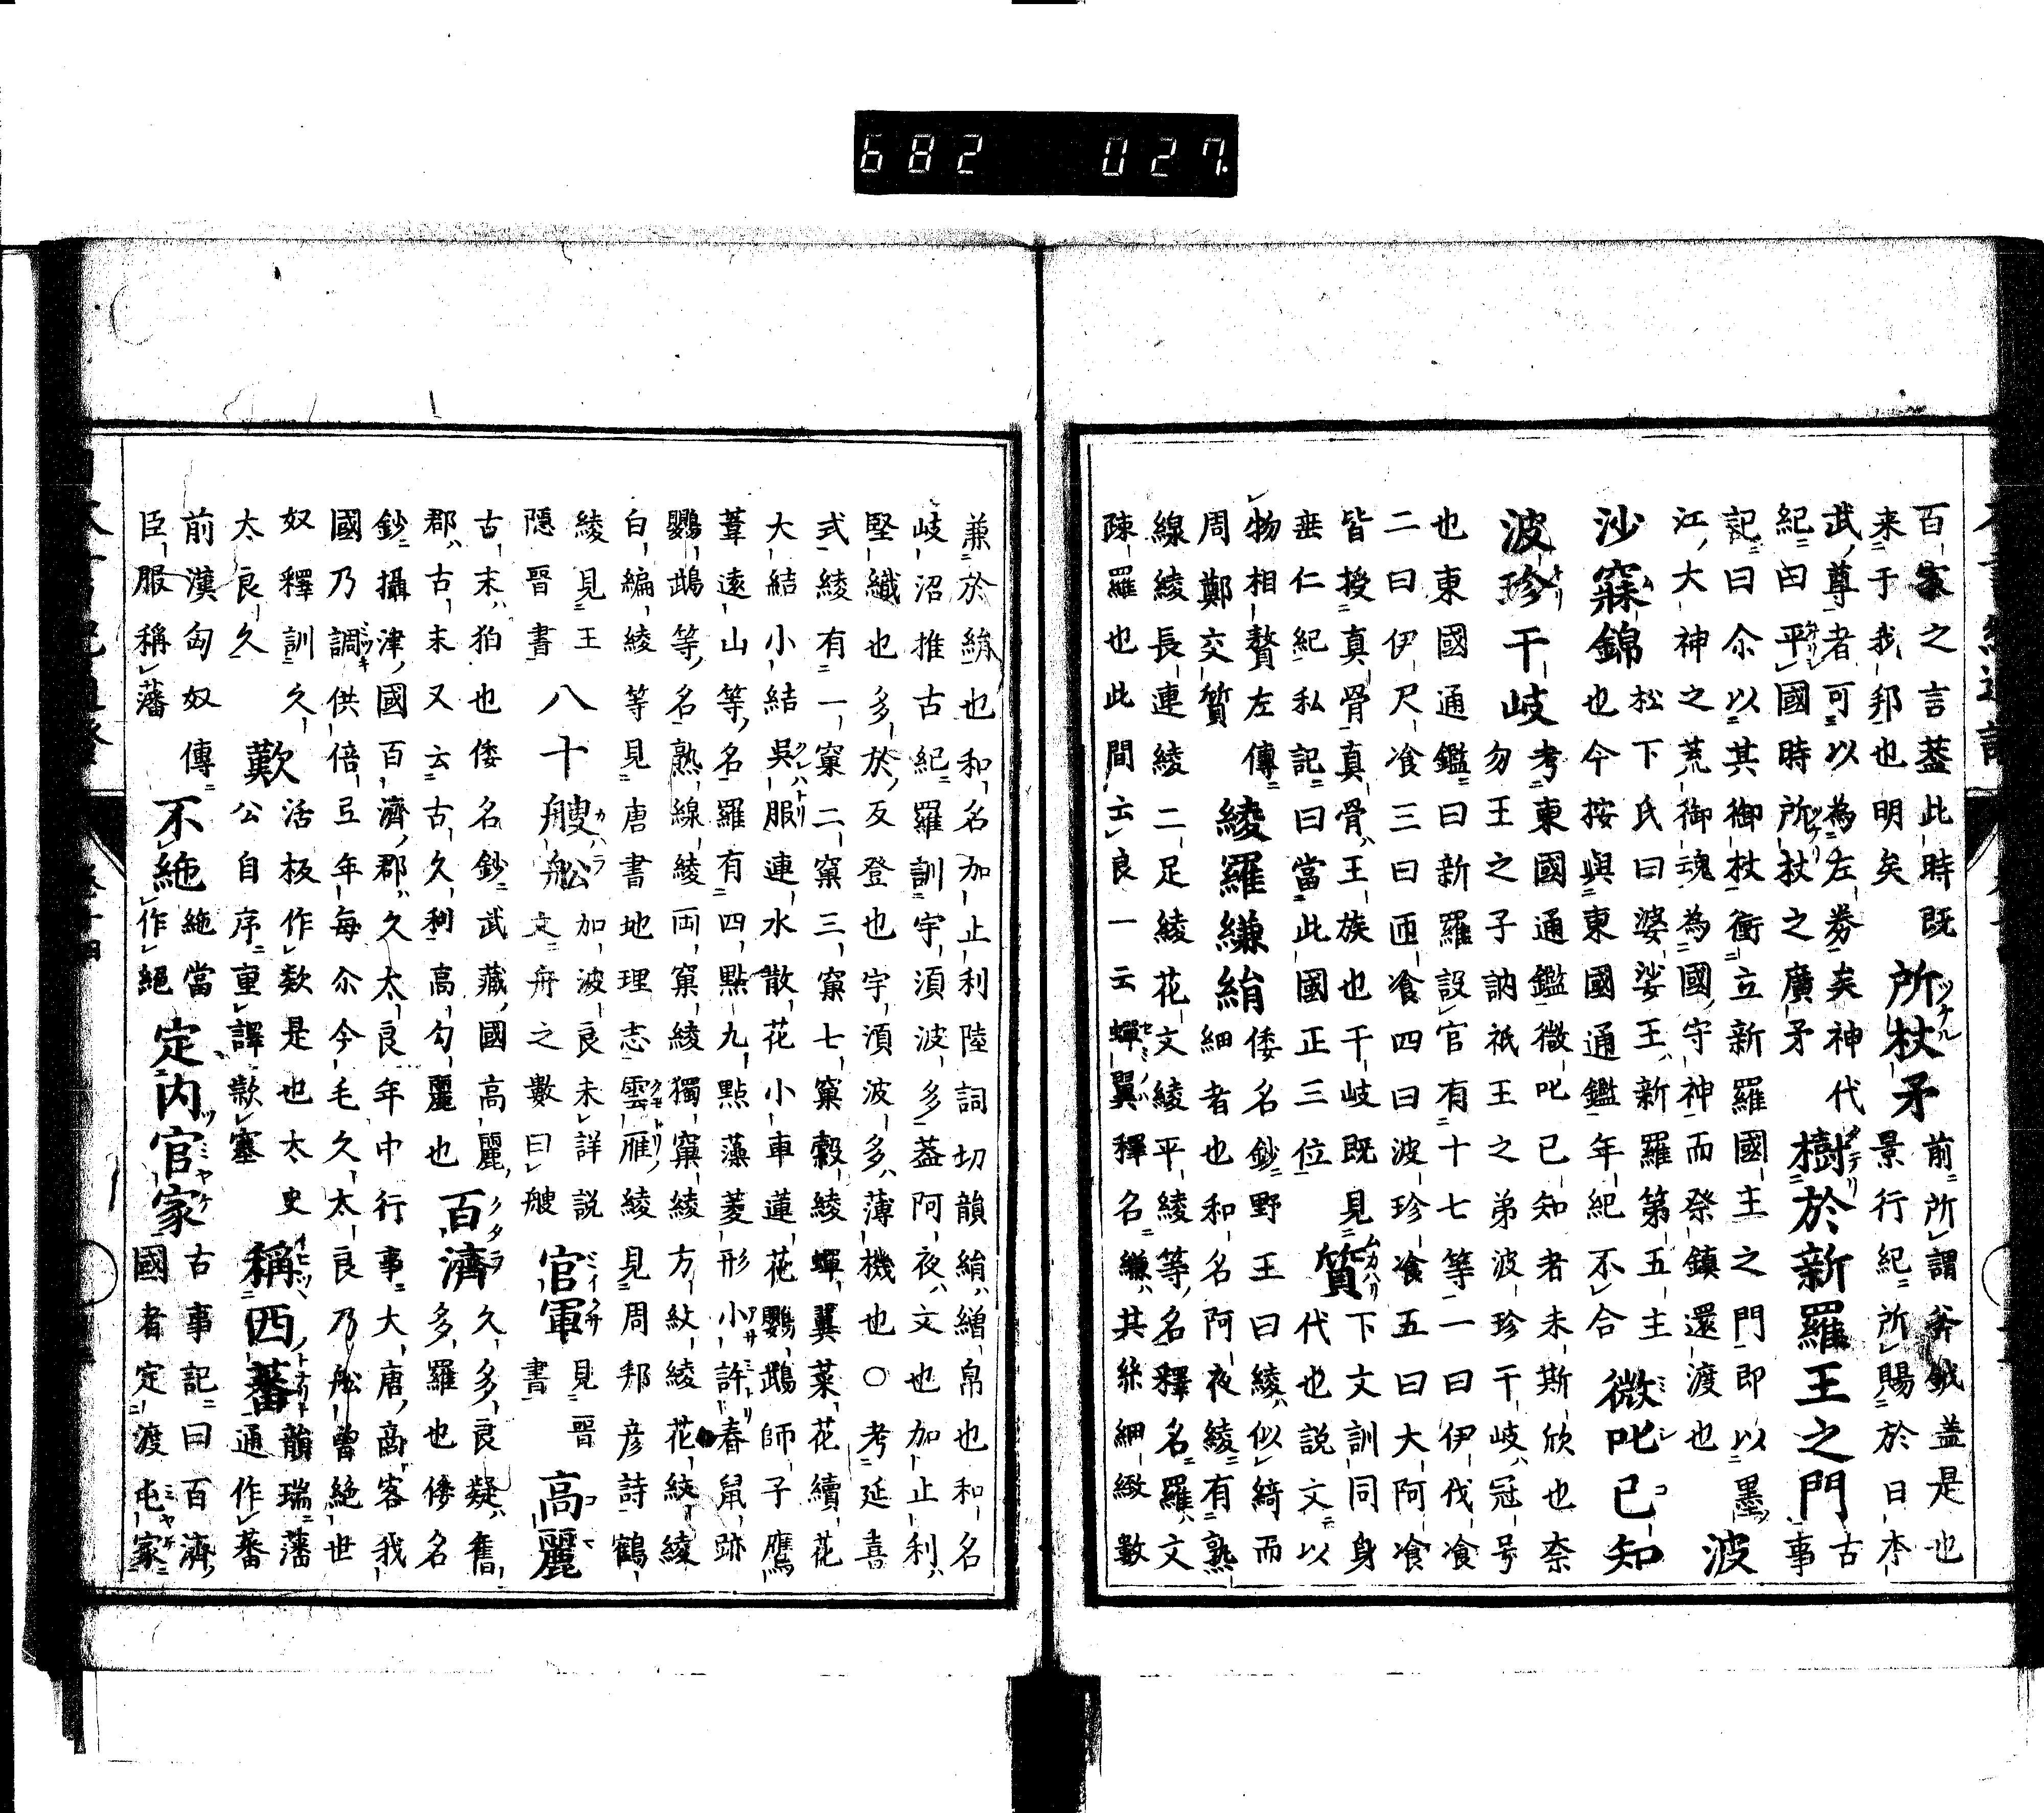 百家之言蓋此時既
来于我邦也明矣
所杖矛
前所謂斧鉞盖是也
景行紀所賜於日本
武尊者可以為左券矣神代
紀曰平國時所杖之廣矛
樹於新羅王之門
古
事
記曰尒以其御杖衝立新羅國主之門即以墨
江大神之荒御魂為國守神而祭鎮還渡也
波
沙寐錦
松下氏曰婆娑王新羅第五主
也今按與東國通鑑年紀不合
微叱已知
波珍干岐
考東國通鑑微叱已知者未斯欣也奈
勿王之子訥祇王之弟波珍干岐冠号
也東國通鑑曰新羅設官有十七等一曰伊伐飡
二曰伊尺飡三曰迊飡四曰波珍飡五曰大阿飡
皆授真骨真骨王族也干岐既見
垂仁紀私記曰當此國正三位
質
下文訓同身
代也説文以
物相贅左傳
周鄭交質
綾羅縑絹
倭名鈔野王曰綾似綺而
細者也和名阿夜綾有熟
線綾長連綾二足綾花文綾平綾等名釋名羅文
疎羅也此間云良一云蟬翼釋名縑其絲細緻數
兼於絹也和名加止利陸詞切韻絹繒帛也和名
岐沼推古紀羅訓宇湏波多蓋阿夜文也加止利
堅織也多於反登也宇湏波多薄機也○考延喜
式綾有一窠二窠三窠七窠縠綾蟬翼菜花續花
大結小結吳服連水散花小車蓮花鸚鵡師子鷹
葦遠山等名羅有四點九點藻菱形小許春鼠跡
鸚鵡等名熟線綾両窠綾獨窠綾方紋綾花紋綾
白編綾等見唐書地理志雲雁綾見周邦彦詩鶴
綾見王
隠晋書
八十艘舩
加波良未詳説
文舟之數曰艘
官軍
見晋
書
高麗
古末狛也倭名鈔武藏國高麗
郡古末又云古久利高勾麗也
百濟
久多良疑舊
多羅也倭名
鈔攝津國百濟郡久太良年中行事大唐商客我
國乃調供倍豆年每尒今毛久太良乃舩曽絶世
奴釋訓久
太良久
歎
活板作欵是也太史
公自序重譯欵塞
稱西蕃
韻瑞藩
通作蕃
前漢匈奴傳
臣服稱藩
不絁
絁當
作絕
定内官家
古事記曰百濟
國者定渡屯家
682 027